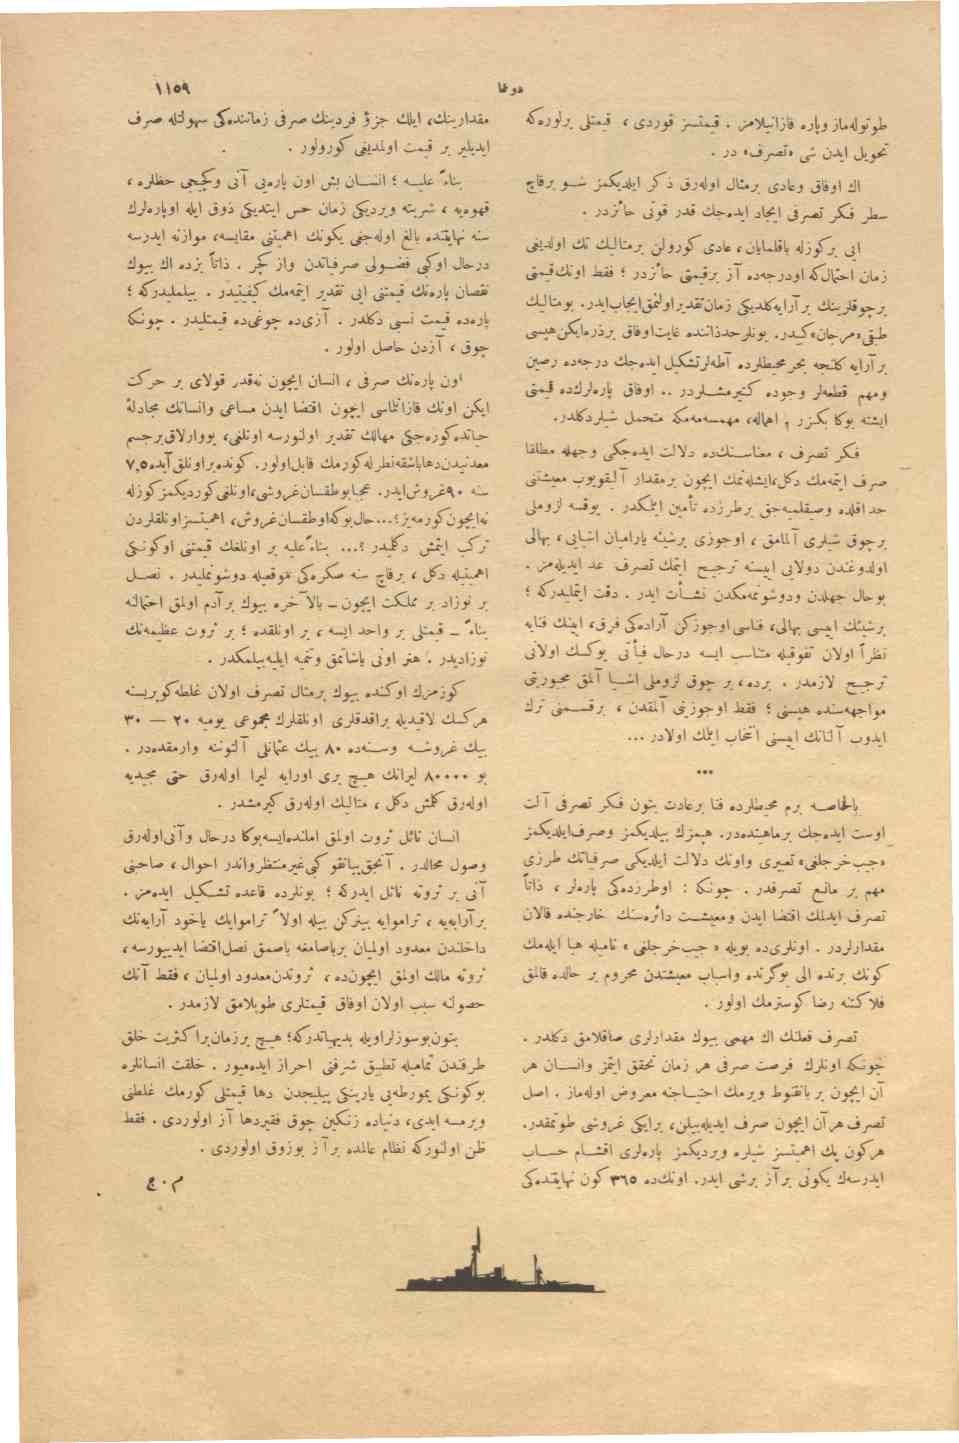 دونما
١١٥٩
طوتوله‌ماز وپاره قازانیلامز . قیمتسز قوردی ، قیمتلی برلوره‌که
تحویل ایدن شی «تصرف» در .
اك اوفاق وعادی برمثال اوله‌رق ذکر ایلدیکمز شو برقاچ
سطر فکر تصرفی ایجاد ایده‌جك قدر قوتی حائزدر .
ایی برکوزله باقلمایان ، عادی کورولن برمتالیك تك اولدیغی
زمان احتمال‌که اودرجه‌ده آز برقیمتی حائزدر ؛ فقط اونك‌قیمتی
برچوقلرینك برآرایه‌کلدیکی زمان‌تقدیراولنمق‌ایجاب‌ایدر. بومتالیك
طبقی«مرجان»کبیدر. بونلرحدذاتنده غایت‌اوفاق برذره‌ایکن‌هپسی
برآرایه کلنجه بحر محیطلرده آطه‌لرتشکیل ایده‌جك درجه‌ده رصین
ومهم قطعه‌لر وجوده کتیرمشلردر .. اوفاق پاره‌لرك‌ده قیمتی
ایشته بوکا بکزر ، اهماله، مهمسه‌مه‌مکه متحمل شیلردکلدر.
فکر تصرف ، معناسنك‌ده دلالت ایده‌جکی وجهله مطلقا
صرف ایتمه‌مك دکل،ایشله‌نمك ایچون برمقدار آلیقویوب معیشتنی
حد اقلده وصیقلمیه‌جق برطرزده تأمین ایتمکدر . یوقسه لزوملی
برچوق شیلری آلمامق ، اوجوزی برشیئه یارامیان اشیایی ، بهالی
اولدوغندن دولایی اییسنه ترجیح ایتمك تصرف عد ایدیله‌مز .
بوحال جهلدن ودوشونمه‌مکدن نشأت ایدر . دقت ایتملیدرکه ؛
برشیئك اییسی بهالی، فناسی اوجوزکن آراده‌کی فرق، اینك فنایه
نظراً اولان تفوقیله متناسب ایسه درحال فیأتی یوکسك اولانی
ترجیح لازمدر . برده، بر چوق لزوملی اشیا آلمق مجبوریتی
مواجهه‌سنده هپسنی ؛ فقط اوجوزینی آلمقدن ، برقسمنی ترك
ایدوب آلنانك اییسنی انتخاب ایتمك اولادر ...
***
بالخاصه بزم محیطلرده فنا برعادت بتون فکر تصرفی آلت
اوست ایده‌جك برماهیتده‌در. هپمزك بیلدیکمز وصرف‌ایلدیکمز
«جیب‌خرجلغی» تعبیری واونك دلالت ایلدیکی صرفیاتك طرزی
مهم بر مانع تصرفدر . چونکه : اوطرزده‌کی پاره‌لر ، ذاتاً
تصرف ایدلمك اقتضا ایدن ومعیشت دائره‌سنك خارجنده قالان
مقدارلردر . اونلری‌ده بویله «جیب‌خرجلغی» نامیله هبا ایله‌مك
کونك برنده الی بوگرنده واسباب معیشتدن محروم بر حالده قالمق
فلاکتنه رضا کوسترمك اولور .
تصرف فعلنك اك مهمی بیوك مقدارلری صاقلامق دکلدر .
چونکه اونلرك فرصت صرفی هر زمان تحقق ایتمز وانسان هر
آن ایچون بر بانقنوط ویرمك احتیاجنه معروض اوله‌ماز . اصل
تصرف هرآن ایچون صرف ایدیله‌بیلن، برایکی غروشی طوتمقدر.
هرکون پك اهمیتسز شیلره ویردیکمز پاره‌لری اقشام حساب
ایدرسه‌ك یکونی برآز برشی ایدر. اونك‌ده ٣٦٥ کون نهایتنده‌کی
مقدارینك، ایلك جزؤ فردینك صرفی زماننده‌کی سهولتله صرف
ایدیلیر بر قیمت اولمدیغی کورولور .
بناءً علیه ؛ انسان بش اون پاره‌یی آنی وکیجی حظلره ،
قهوه‌یه ، شربته ویردیکی زمان حس ایتدیکی ذوق ایله اوپاره‌لرك
سنه نهایتنده بالغ اوله‌جغی یکونك اهمیتنی مقایسه، موازنه ایدرسه
درحال اوکبی فضولی صرفیاتدن واز کچر . ذاتاً بزده اك بیوك
نقصان پاره‌نك قیمتنی ایی تقدیر ایتمه‌مك کیفیتیدر . بیلملیدرکه ؛
پاره‌ده قیمت نسبی دکلدر . آزی‌ده چوغی‌ده قیمتلیدر . چونکه
چوق ، آزدن حاصل اولور .
اون پاره‌نك صرفی ، انسان ایچون نه‌قدر قولای بر حرکت
ایکن اونك قازانلماسی ایچون اقتضا ایدن مساعی وانسانك مجادلهٔ
حیاتده‌کوره‌جکی مهالك تقدیر اولنورسه اونلغی، یووارلاق‌برجسم
معدنیدن‌دهاباشقه‌نظرله‌کورمك قابل‌اولور. کونده‌براونلق‌آیده٧,٥
سنه ٩٠غروش‌ایدر. عجبابوطقسان‌غروشی،اونلغی‌کوردیکمزکوزله
نه‌ایچون‌کورمه‌یز؟...حال‌بوکه‌اوطقسان‌غروش، اهمیتسزاونلقلردن
ترکب ایتمش دکلیدر ؟... بناءًعلیه بر اونلغك قیمتنی اوکونکی
اهمیتیله دکل ، برقاچ سنه صکره‌کی موقعیله دوشونملیدر . نصل
بر نوزاد بر مملکت ایچون ــ بالآخره بیوك برآدم اولمق احتمالنه
بناءً ــ قیمتلی بر واحد ایسه ، بر اونلقده ؛ بر ثروت عظیمه‌نك
نوزادیدر . هنر اونی یاشاتمق وتنمیه ایلیه‌بیلمکدر .
کوزمزك اوکنده بیوك برمثال تصرف اولان غلطه‌کوپریسنه
هرکسك لاقیدیله براقدقلری اونلقلرك مجموعی یومیه ٢٠ — ٣٠
بیك غروشه وسنه‌ده ٨٠ بیك عثمانلی آلتوننه وارمقده‌در .
بو ٨٠٠٠٠ لیرانك هیچ بری اورایه لیرا اوله‌رق حتی مجیدیه
اوله‌رق کلمش دکل ، متالیك اوله‌رق کیرمشدر .
انسان نائل ثروت اولمق املنده‌ایسه‌بوکا درحال وآنی‌اوله‌رق
وصول محالدر . آنجق‌پیانقو کبی‌غیرمنتظرواندر احوال ، صاحبنی
آنی بر ثروته نائل ایدرکه ؛ بونلرده قاعده تشکیل ایده‌مز .
برآرابه‌یه ، تراموایه بینرکن بیله اولا تراموایك یاخود آرابه‌نك
داخلندن معدود اولمیان برباصامغه باصمق نصل‌اقتضا ایدییورسه ،
ثروته مالك اولمق ایچون‌ده ، ثروتدن‌معدود اولمیان ، فقط آنك
حصولنه سبب اولان اوفاق قیمتلری طوپلامق لازمدر .
بتون‌بوسوزلراویله بدیهیاتدرکه؛ هیچ برزمان‌براکثریت خلق
طرفندن تمامیله تطبیق شرفنی احراز ایده‌میور . خلقت انسانلره
بوکونکی یمورطه‌یی یارینکی پیلیجدن دها قیمتلی کورمك غلطنی
ویرمسه ایدی، دنیاده زنکین چوق فقیردها آز اولوردی . فقط
ظن اولنورکه نظام عالمده برآز بوزوق اولوردی .
م . ج